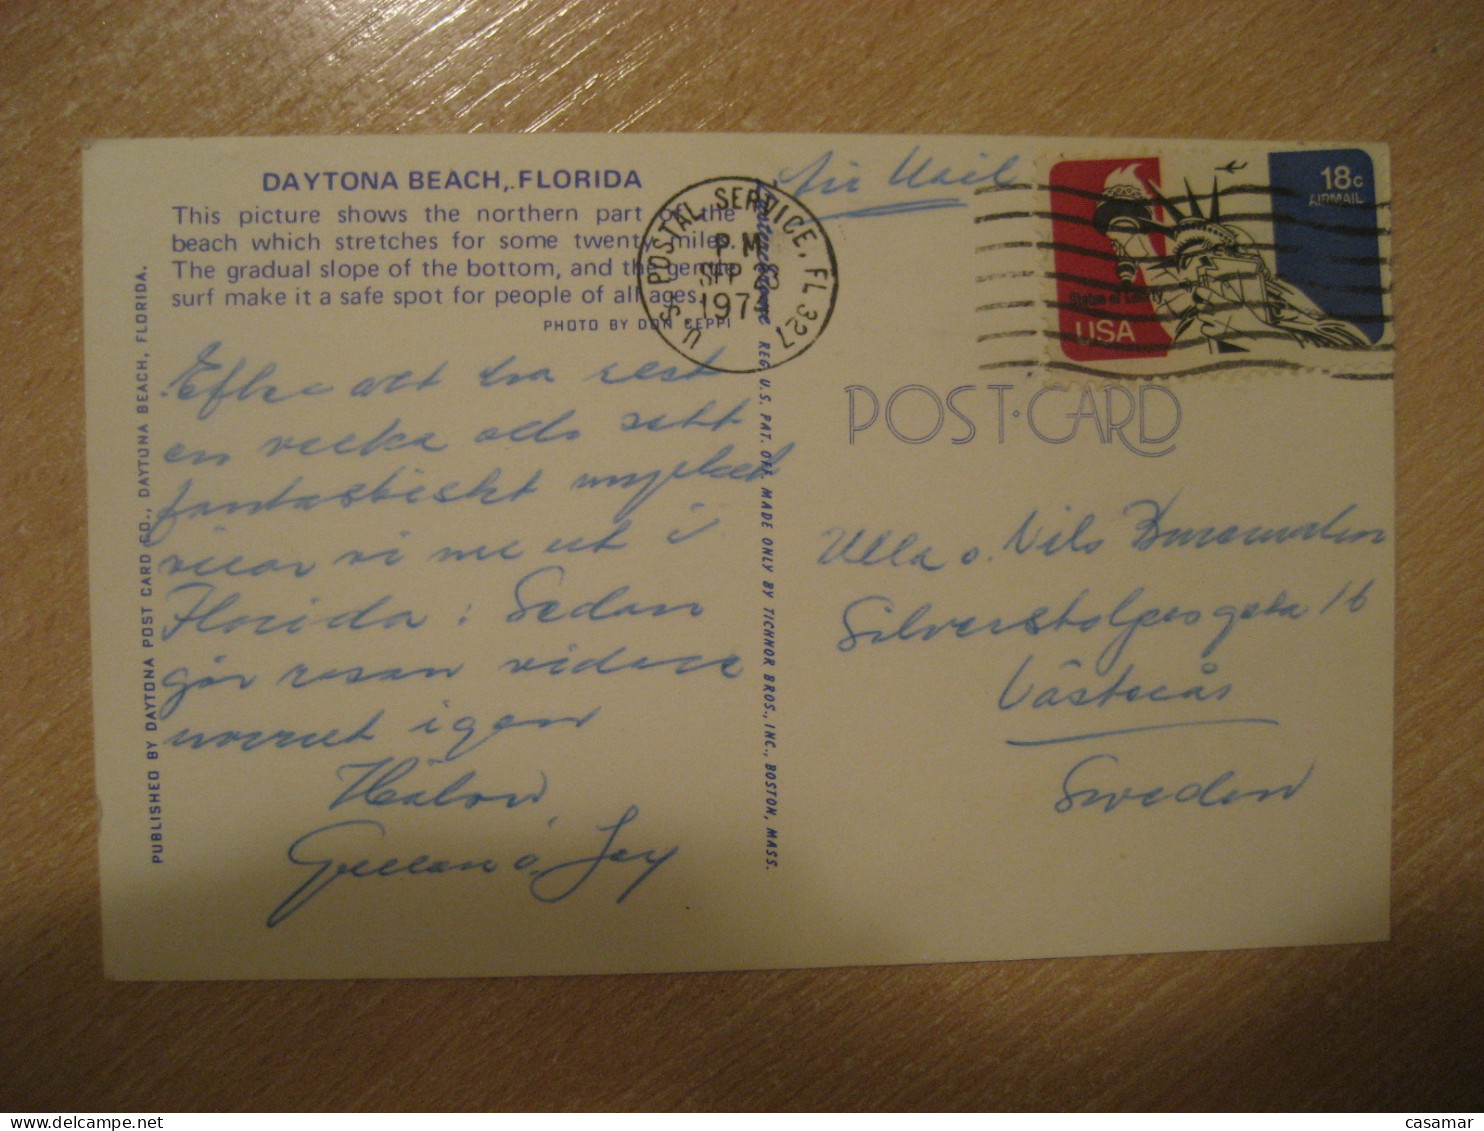 DAYTONA BEACH, FLORIDA
This picture shows the northern part of the
beach which stretches for some twenty miles.
The gradual slope of the bottom, and the gentle
surf make it a safe spot for people of all ages.
PHOTO BY DON SEPPI
Efter att ha rest
en vecka och sett
fantastiskt mycket
vilar vi nu ut i
Florida. Sedan
går resan vidare
norrut igen
Hälsn,
o.
PUBLISHED BY DAYTONA POST CARD CO., DAYTONA BEACH, FLORIDA.
REG. U.S. PAT. OFF. MADE ONLY BY TICHNOR BROS., INC., BOSTON, MASS.
U.S. POSTAL SERVICE, FL 327
PM
SEP 23
Air Mail
18c
AIRMAIL
Statue of Liberty
USA
POST CARD
Ulla o. Nils
Silverstolpesgata 16
Västerås
Sweden
casamar